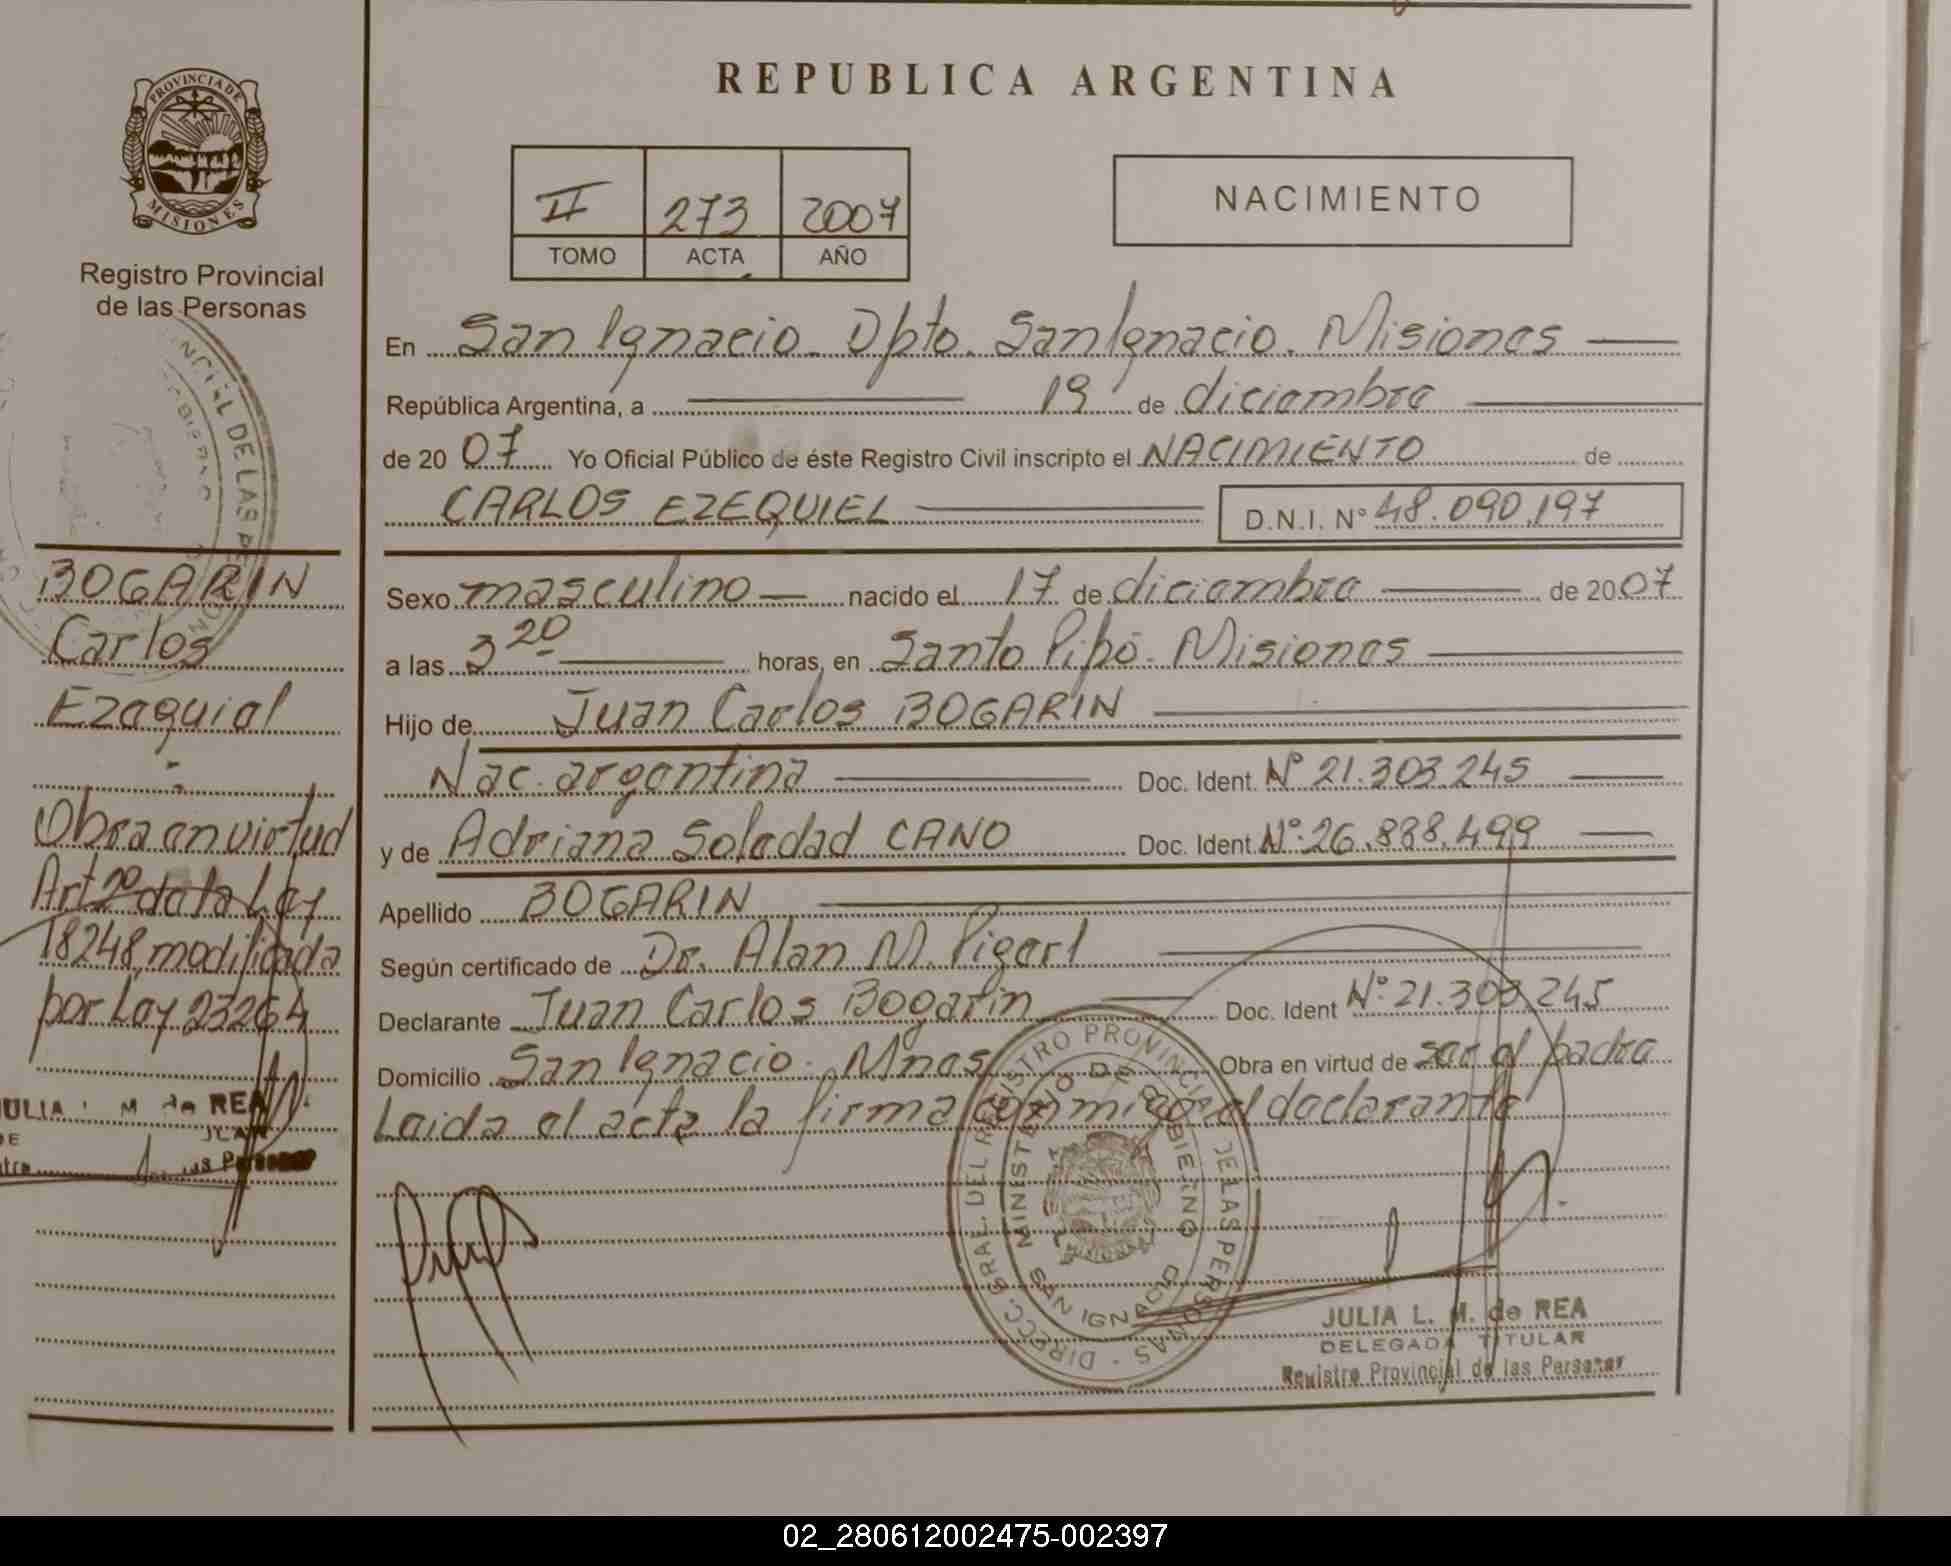 PROVINCIA DE
MISIONES
Registro Provincial
de las Personas
BOGARIN
Carlos
Ezequiel
Obra en virtud
Art 2º de la Ley
18248, modificada
por Ley 23264
JULIA L. M. de REA
REPUBLICA ARGENTINA
II 273 2007
TOMO ACTA AÑO
NACIMIENTO
En San Ignacio. Dpto. San Ignacio. Misiones
República Argentina, a 19 de diciembre
de 20 07 Yo Oficial Público de éste Registro Civil inscripto el NACIMIENTO de
CARLOS EZEQUIEL D.N.I. Nº 48.090.197
Sexo masculino nacido el 17 de diciembre de 2007
a las 3 20 horas, en Santo Pipó. Misiones
Hijo de Juan Carlos BOGARIN
Nac. argentina Doc. Ident. Nº 21.303.245
y de Adriana Soledad CANO Doc. Ident. Nº. 26.888.499
Apellido BOGARIN
Según certificado de Dr. Alan M.
Declarante Juan Carlos Bogarin Doc. Ident Nº. 21.303.245
Domicilio San Ignacio. Mnes Obra en virtud de ser el padre
Leida el acta la firma conmigo el declarante
DIRECC. GRAL. DEL REGISTRO PROVINCIAL DE LAS PERSONAS
MINISTERIO DE GOBIERNO
SAN IGNACIO
JULIA L. M. de REA
DELEGADA TITULAR
Registro Provincial de las Personas
02_280612002475-002397